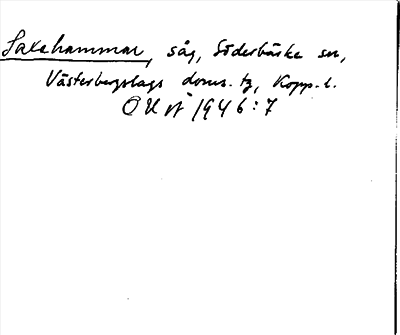 Saxehammar, såg, Söderbärke sn,
Västerbergslags doms. tg, Kopp. l.
OUÄ 1946:7